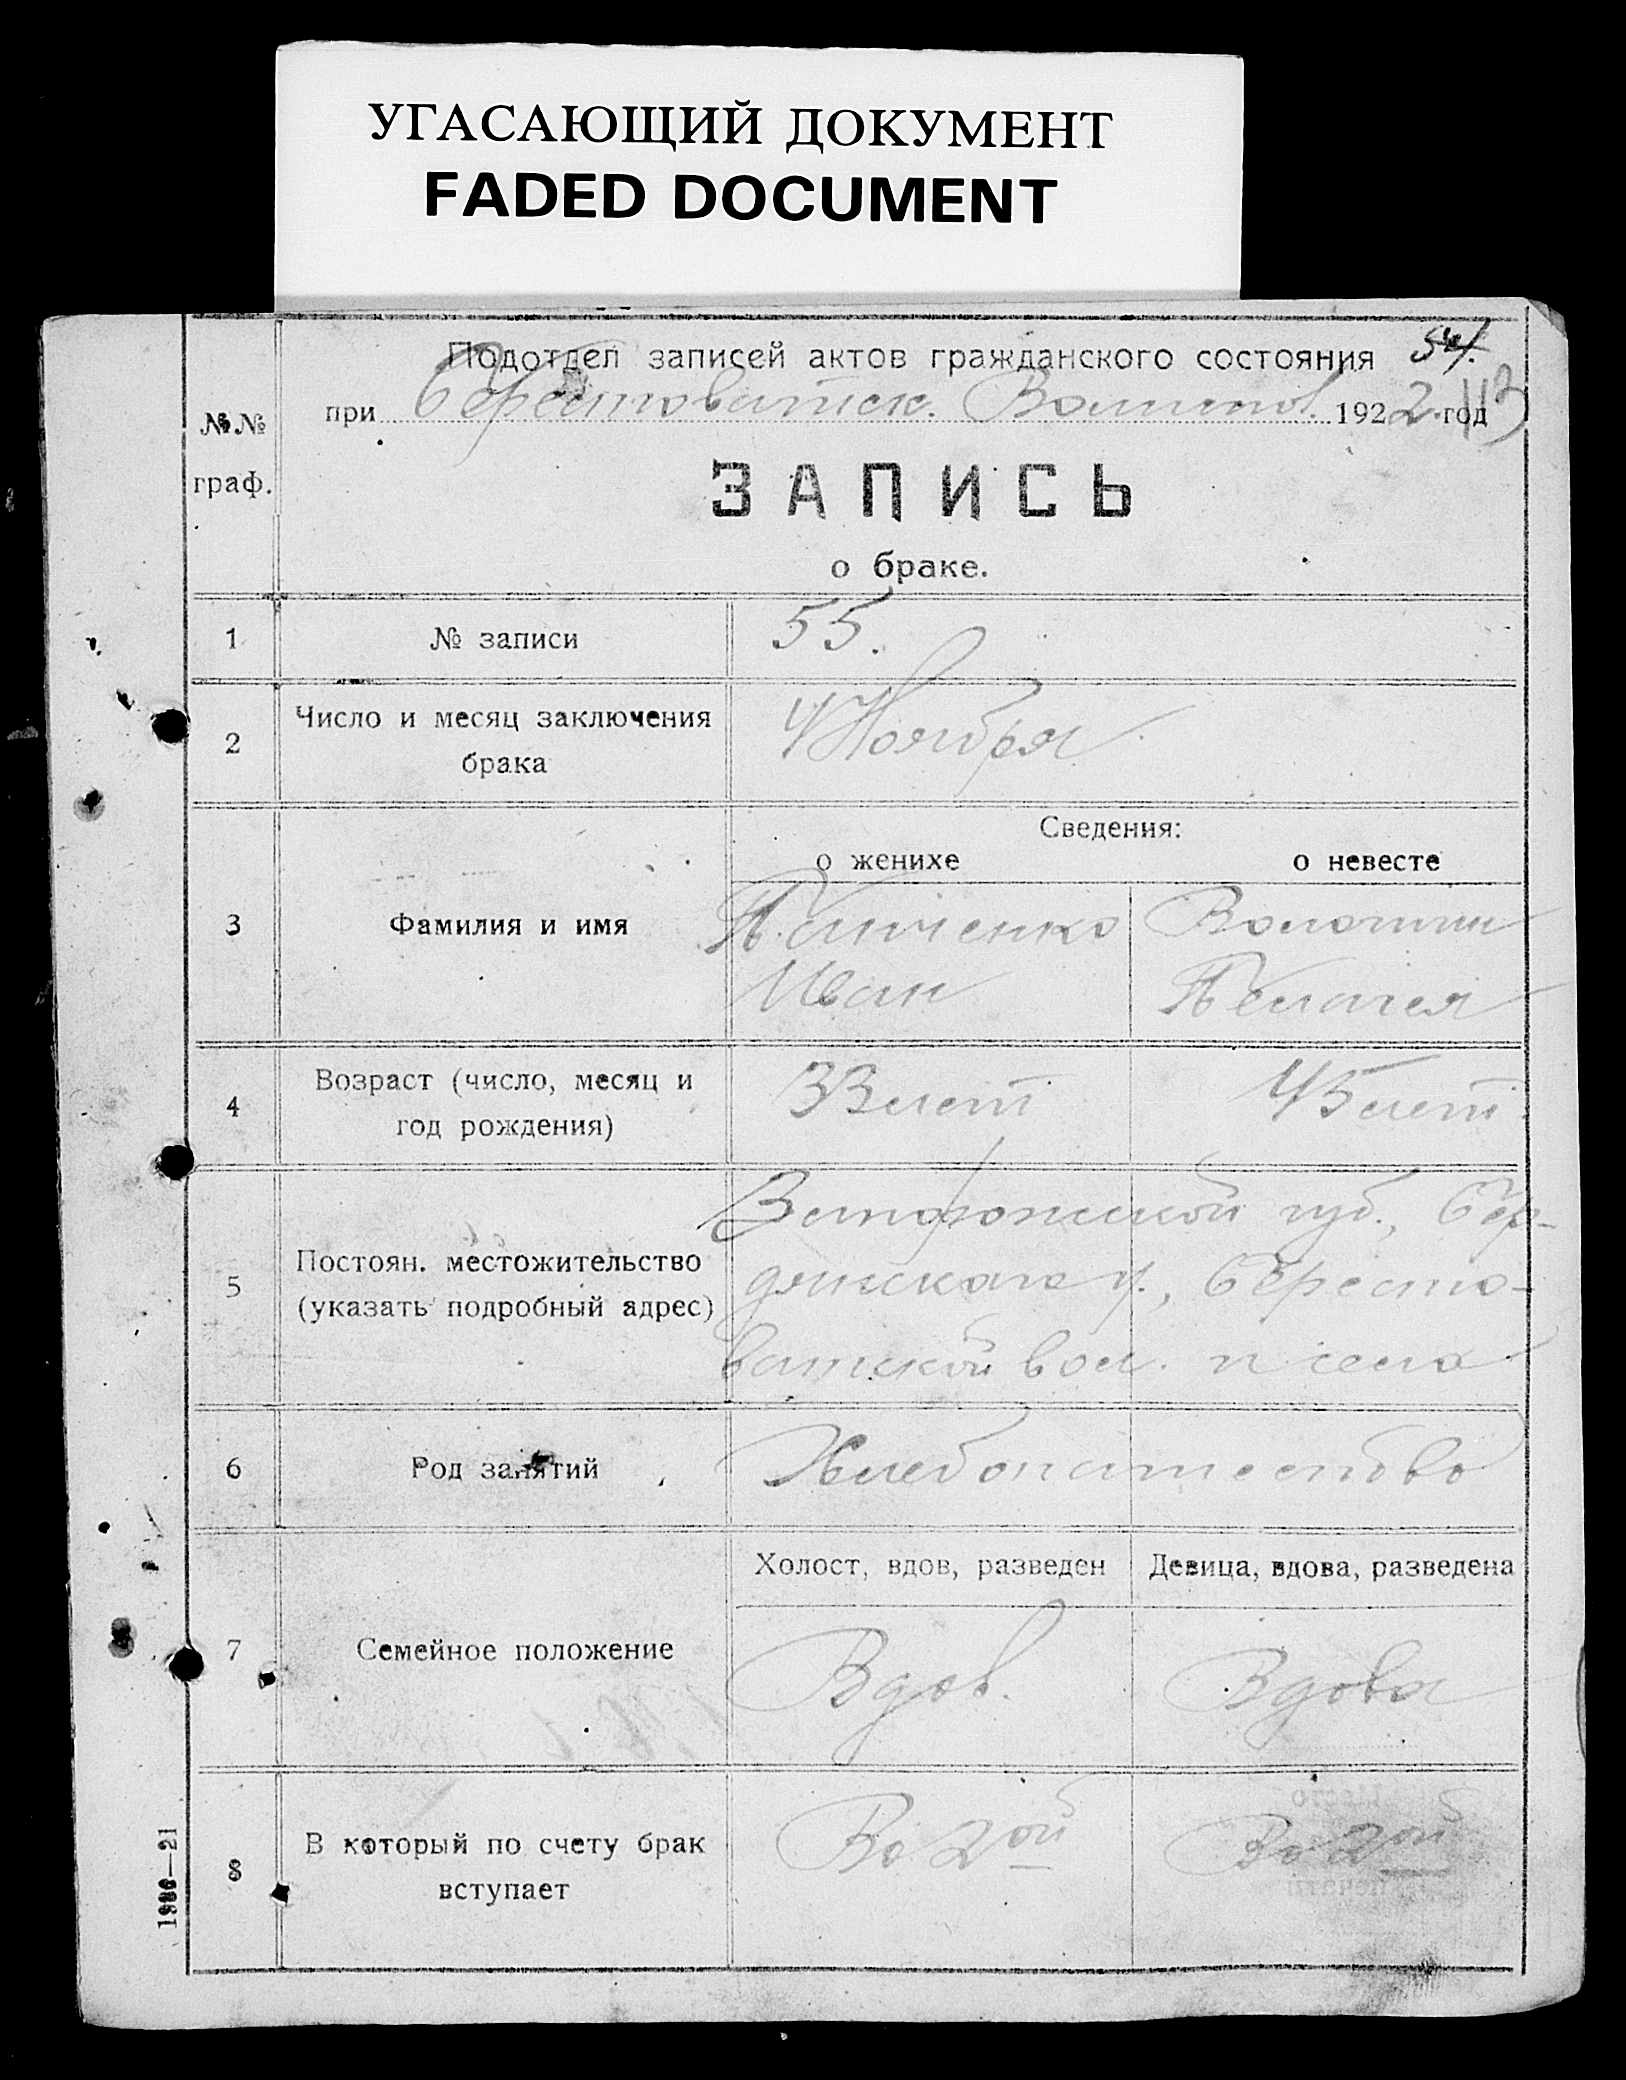 УГАСАЮЩИЙ ДОКУМЕНТ
FADED DOCUMENT
Подотдел записей актов гражданского состояния 54.
при Берестоватск. Волиспол. 1922 год 113
№№
граф.
ЗАПИСЬ
о браке.
1 № записи 55.
2 Число и месяц заключения
брака
4 Ноября
Сведения:
о женихе о невесте
3 Фамилия и имя
Панченко
Иван
Пелагея
4 Возраст (число, месяц и
год рождения)
33 лет 45 лет
5 Постоян. местожительство
(указать подробный адрес)
Запорожской губ., Бер-
дянского у., Бересто-
ватской вол. и села
6 Род занятий Хлебопашество
Холост, вдов, разведен Девица, вдова, разведена
7 Семейное положение Вдов. Вдова
8 В который по счету брак
вступает
Во 2ой Во 2ой